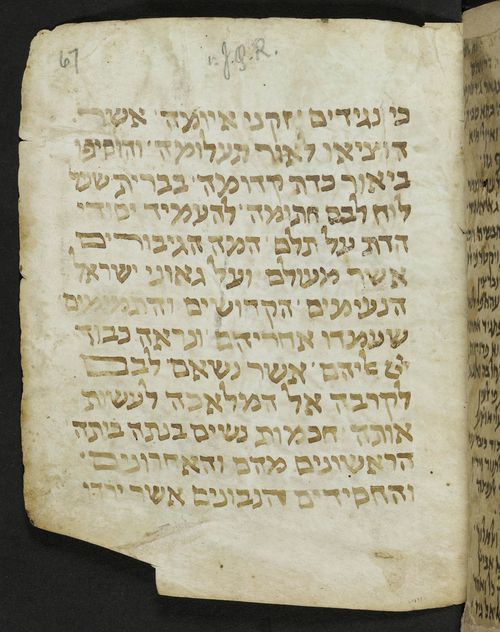 67
v. J.Q.R.
כי נגידים זקני איומה אשר
הוציאו לאור תעלומה והוסיפו
ביאור כדת קדומה בברית
לוח לבם חתומה להעמיד יסודי
הדת על תלם המה הגיבורים
אשר מעולם ועל גאוני ישראל
הנעימים הקדושים והתמימים
שעמדו אחריהם ונראה כבוד
אשר נשאם לבם
לקרבה אל המלאכה לעשות
אותה חכמות נשים בנתה ביתה
הראשונים מהם והאחרונים
והחסידים הנבונים אשר